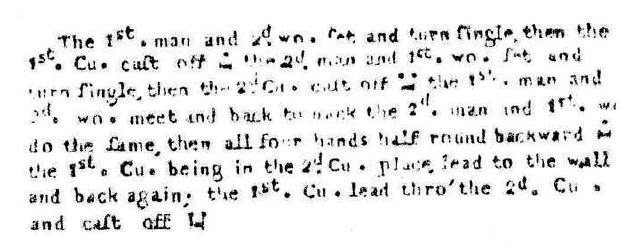 The 1st. man and 2d. wo. ſet and turn ſingle, then the
1st. Cu. caſt off the 2d. man and 1st. wo. ſet and
turn ſingle, then the 2d Cu. caſt off the 1st. man and
2d. wo. meet and back to back the 2d. man and 1st. wo
do the ſame, then all four hands half round backward
the 1st. Cu. being in the 2d Cu. place, lead to the wall
and back again; the 1st. Cu. lead thro' the 2d. Cu.
and caſt off